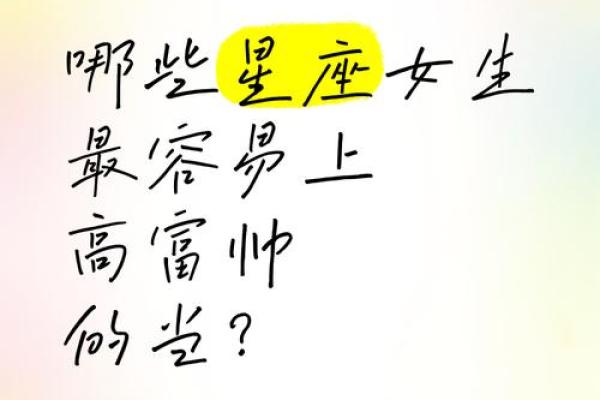 哪些星座女生
最容易上
高富帅
的当?